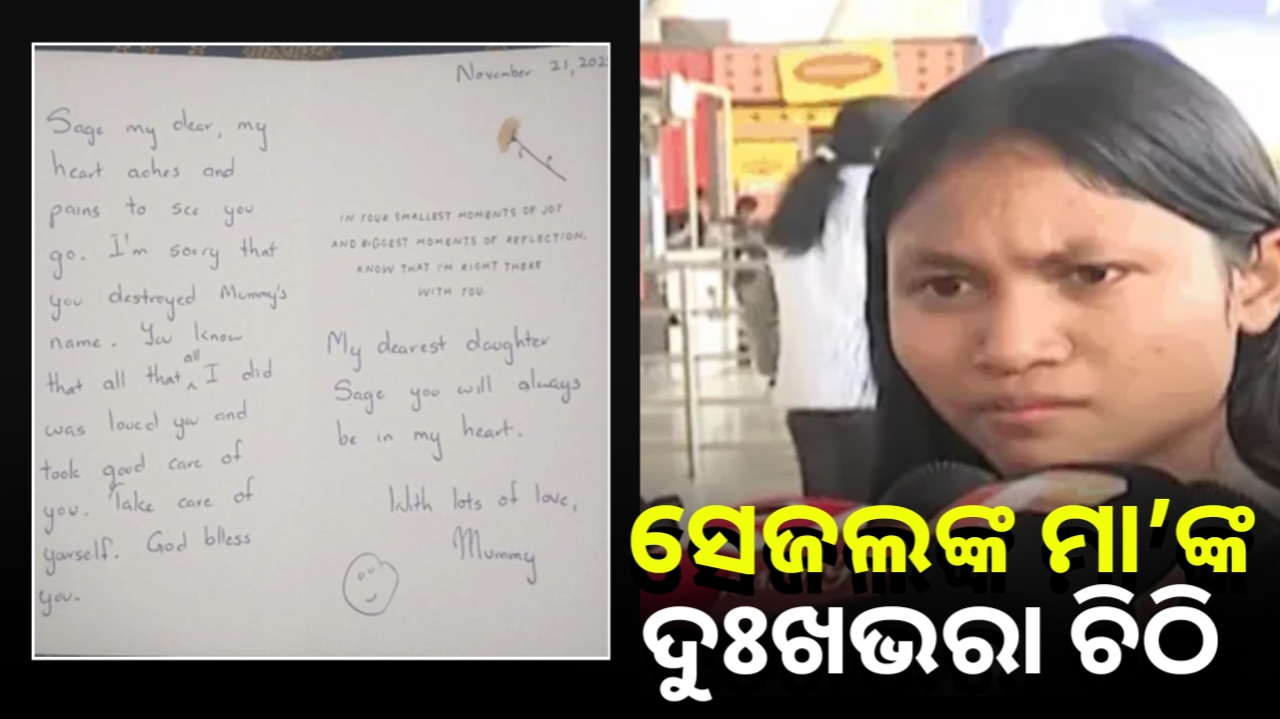 November 21, 202
Sage my dear, my
heart aches and
pains to see you
go. I'm sorry that
you destroyed Mummy's
name. You know
that all that all I did
was loved you and
took good care of
you. Take care of
yourself. God blless
you.
IN YOUR SMALLEST MOMENTS OF JOY
AND BIGGEST MOMENTS OF REFLECTION,
KNOW THAT I'M RIGHT THERE
WITH YOU.
My dearest daughter
Sage you will always
be in my heart.
With lots of love,
Mummy
ସେଜଲଙ୍କ ମା'ଙ୍କ
ଦୁଃଖଭରା ଚିଠି